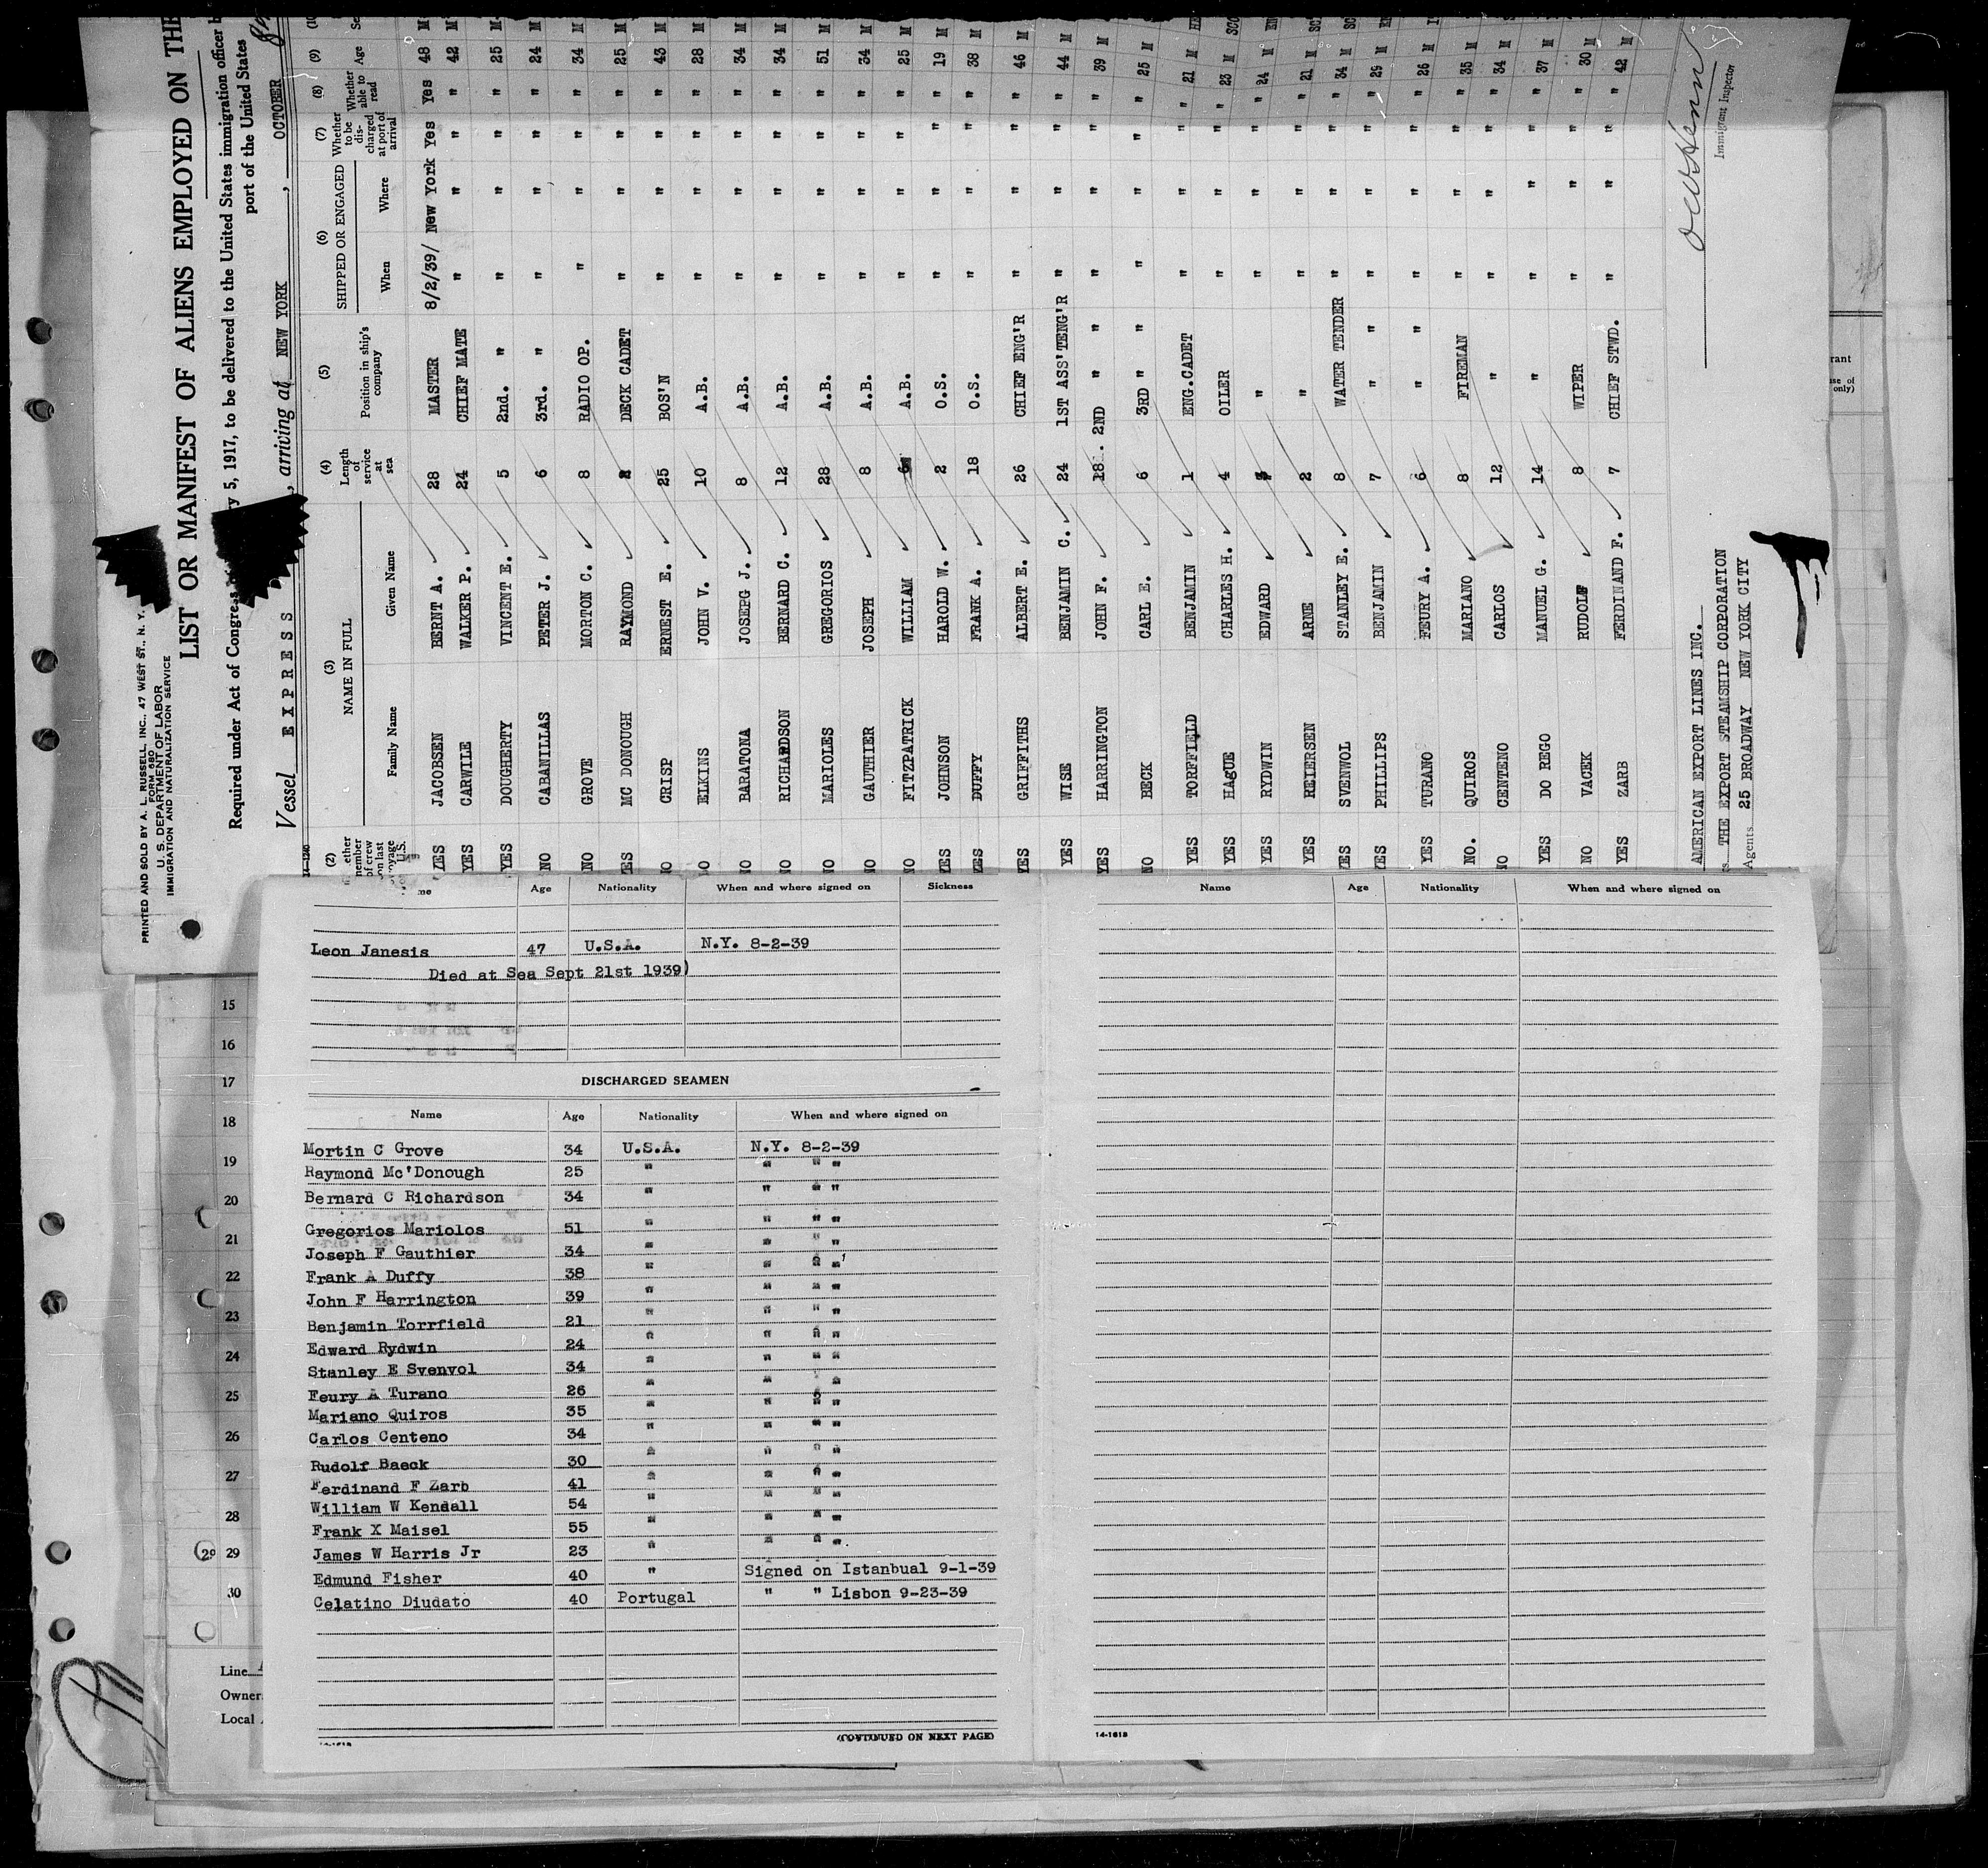 PRINTED AND SOLD BY A. L. RUSSELL, INC., 47 WEST ST., N. Y.
FORM 680
U. S. DEPARTMENT OF LABOR
IMMIGRATION AND NATURALIZATION SERVICE
LIST OR MANIFEST OF ALIENS EMPLOYED ON THE
Required under Act of Congress 5, 1917, to be delivered to the United States immigration officer
port of the United States
Vessel EXPRESS , arriving at NEW YORK , OCTOBER
(2) (3) (4) (5) (6) (7) (8) (9)
NAME IN FULL Length of service at sea Position in ship's company SHIPPED OR ENGAGED Whether to be discharged at port of arrival Whether able to read Age
Family Name Given Name When Where
YES JACOBSEN BERNT A. 28 MASTER 8/2/39/ New York Yes Yes 48 M
YES CARWILE WALKER P. 24 CHIEF MATE " " " " 42 M
YES DOUGHERTY VINCENT E. 5 2nd. " " " " " 25 M
NO CABANILLAS PETER J. 6 3rd. " " " " " 24 M
NO GROVE MORTON C. 8 RADIO OP. " " " " 34 M
YES MC DONOUGH RAYMOND 2 DECK CADET " " " " 25 M
NO CRISP ERNEST E. 25 BOS'N " " " " 43 M
NO ELKINS JOHN V. 10 A.B. " " " " 28 M
NO BARATONA JOSEPG J. 8 A.B. " " " " 34 M
NO RICHARDSON BERNARD C. 12 A.B. " " " " 34 M
NO MARIOLES GREGORIOS 28 A.B. " " " " 51 M
NO GAUTHIER JOSEPH 8 A.B. " " " " 34 M
NO FITZPATRICK WILLIAM 6 A.B. " " " " 25 M
YES JOHNSON HAROLD W. 2 O.S. " " " " 19 M
YES DUFFY FRANK A. 18 O.S. " " " " 38 M
YES GRIFFITHS ALBERT E. 26 CHIEF ENG'R " " " " 46 M
YES WISE BENJAMIN C. 24 1ST ASS'TENG'R " " " " 44 M
YES HARRINGTON JOHN F. 18 2ND " " " " " " 39 M
NO BECK CARL E. 6 3RD " " " " " " 25 M
YES TORFFIELD BENJAMIN 1 ENG.CADET " " " " 21 M
YES HAGUE CHARLES H. 4 OILER " " " " 23 M
YES RYDWIN EDWARD " " " " " 24 M
YES REIERSEN ARNE 2 " " " " " 21 M
YES SVENWOL STANLEY E. 8 WATER TENDER " " " " 34 M
YES PHILLIPS BENJAMIN 7 " " " " " 29 M
YES TURANO FEURY A. 6 " " " " " 26 M
NO. QUIROS MARIANO 8 FIREMAN " " " " 35 M
NO CENTENO CARLOS 12 " " " " " 34 M
YES DO REGO MANUEL G. 14 " " " " " 37 M
NO VACHK RUDOLF 8 WIPER " " " " 30 M
YES ZARB FERDINAND F. 7 CHIEF STWD. " " " " 42 M
AMERICAN EXPORT LINES INC.
THE EXPORT STEAMSHIP CORPORATION
Agents 25 BROADWAY NEW YORK CITY
Immigrant Inspector
Age Nationality When and where signed on Sickness
Leon Janesis 47 U.S.A. N.Y. 8-2-39
Died at Sea Sept 21st 1939)
DISCHARGED SEAMEN
Name Age Nationality When and where signed on
Mortin C Grove 34 U.S.A. N.Y. 8-2-39
Raymond Mc'Donough 25 " " " "
Bernard C Richardson 34 " " " "
Gregorios Mariolos 51 " " " "
Joseph F Gauthier 34 " " " "
Frank A Duffy 38 " " " "
John F Harrington 39 " " " "
Benjamin Torrfield 21 " " " "
Edward Rydwin 24 " " " "
Stanley E Svenvol 34 " " " "
Feury A Turano 26 " " "
Mariano Quiros 35 " " " "
Carlos Centeno 34 " " " "
Rudolf Baeck 30 " " " "
Ferdinand F Zarb 41 " " " "
William W Kendall 54 " " " "
Frank X Maisel 55 " " " "
James W Harris Jr 23 " " " "
Edmund Fisher 40 " Signed on Istanbual 9-1-39
Celatino Diudato 40 Portugal " " Lisbon 9-23-39
(CONTINUED ON NEXT PAGE)
Name Age Nationality When and where signed on
14-1618
15
16
17
18
19
20
21
22
23
24
25
26
27
28
29 29
30
Line
Owner
Local